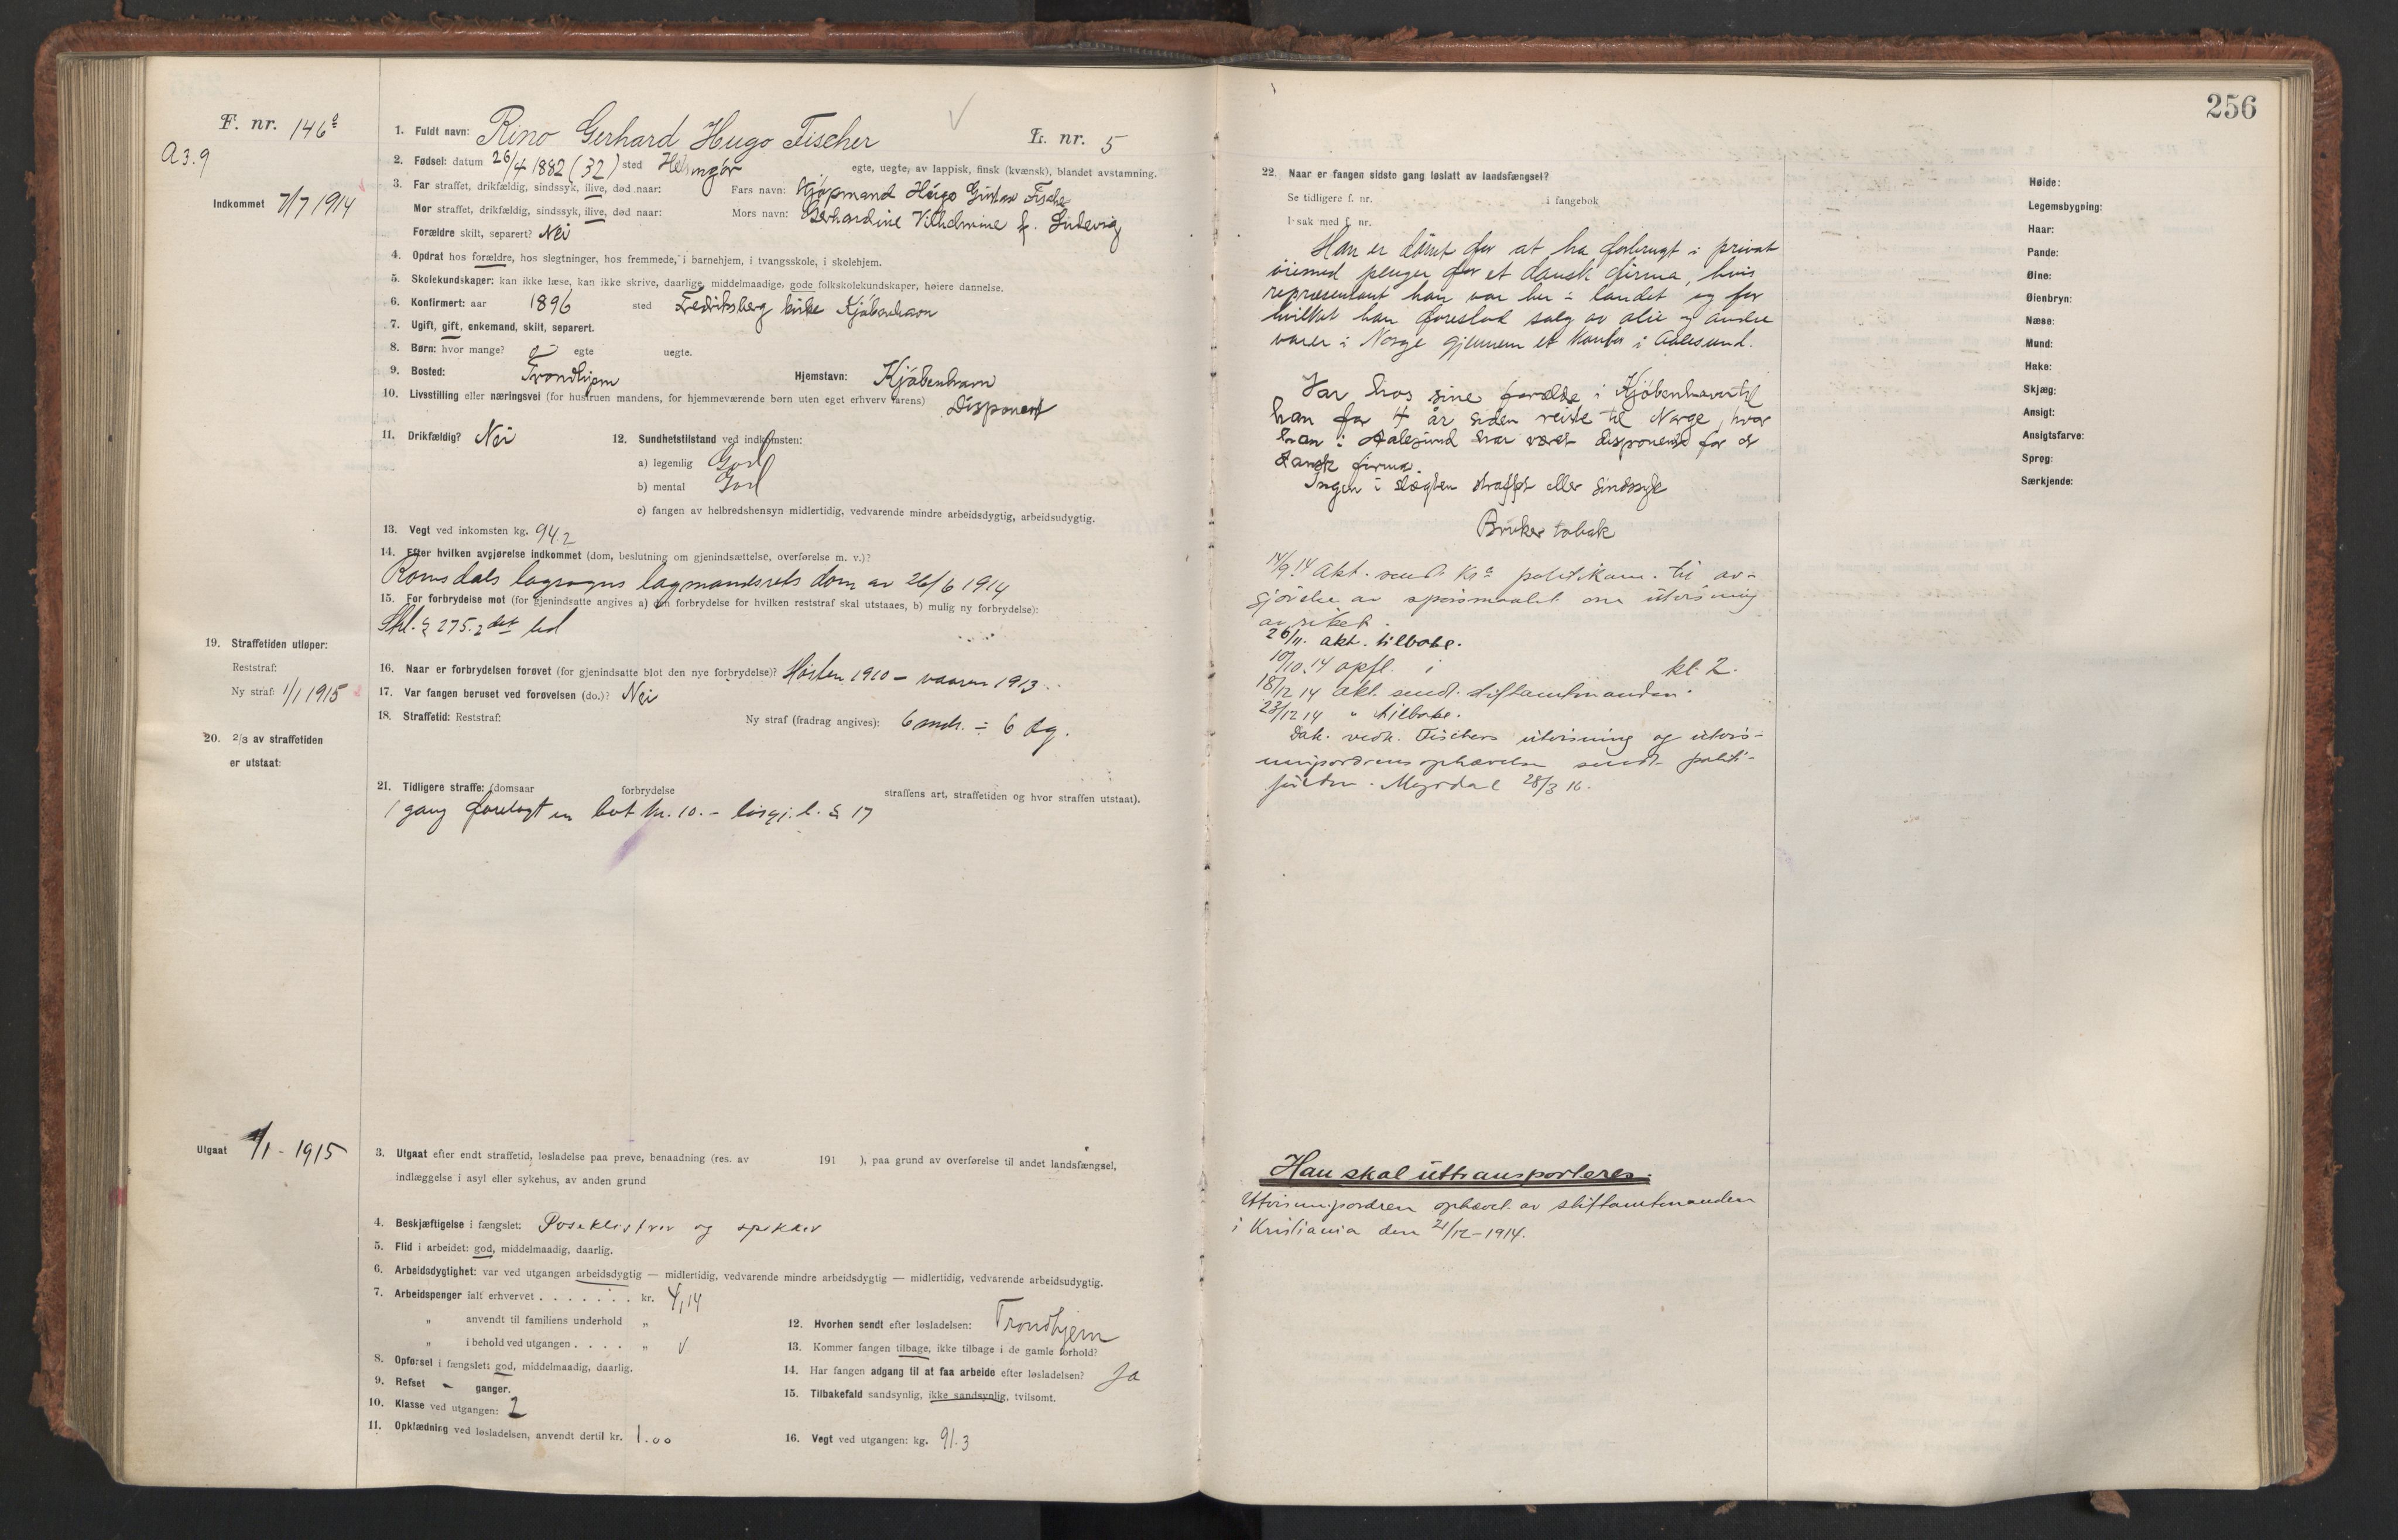 256
F. nr. 146a
A 3. 9
1. Fuldt navn: Rino Gerhard Hugo Fischer
L. nr. 5
2. Fødsel: datum 26/4 1882 (32) sted Helsingør egte, uegte, av lappisk, finsk (kvænsk), blandet avstamning.
Indkommet 7/7 1914
3. Far straffet, drikfældig, sindssyk, ilive, død naar: Fars navn: Kjøpmand Hugo Gustav Fischer
Mor straffet, drikfældig, sindssyk, ilive, død naar: Mors navn: Gerhardine Vilhelmine f. Ludevig
Forældre skilt, separert? Nei
4. Opdrat hos forældre, hos slegtninger, hos fremmede, i barnehjem, i tvangsskole, i skolehjem.
5. Skolekundskaper: kan ikke læse, kan ikke skrive, daarlige, middelmaadige, gode folkskolekundskaper, høiere dannelse.
6. Konfirmert: aar 1896 sted Fredriksberg kirke Kjøbenhavn
7. Ugift, gift, enkemand, skilt, separert.
8. Børn: hvor mange? 0 egte uegte.
9. Bosted: Trondhjem Hjemstavn: Kjøbenhavn
10. Livsstilling eller næringsvei (for hustruen mandens, for hjemmeværende børn uten eget erhverv farens) Disponent
11. Drikfældig? Nei 12. Sundhetstilstand ved indkomsten:
a) legemlig God
b) mental God
c) fangen av helbredshensyn midlertidig, vedvarende mindre arbeidsdygtig, arbeidsudygtig.
13. Vegt ved inkomsten kg. 94.2
14. Efter hvilken avgjørelse indkommet (dom, beslutning om gjenindsættelse, overførelse m. v.)?
Romsdals lagsogns lagmandsrets dom av 26/6 1914
15. For forbrydelse mot (for gjenindsatte angives a) den forbrydelse for hvilken reststraf skal utstaaes, b) mulig ny forbrydelse):
Strl. § 275. 2det led
19. Straffetiden utløper:
Reststraf:
Ny straf: 1/1 1915
16. Naar er forbrydelsen forøvet (for gjenindsatte blot den nye forbrydelse)? Høsten 1910 – vaaren 1913
17. Var fangen beruset ved forøvelsen (do.)? Nei
18. Straffetid: Reststraf: Ny straf (fradrag angives): 6 mdr. ÷ 6 dg.
20. 2/3 av straffetiden
er utstaat:
21. Tidligere straffe: (domsaar forbrydelse straffens art, straffetiden og hvor straffen utstaat).
1 gang forelagt en bot kr. 10.– løsgj. l. § 17
Utgaat 1/1 - 1915
3. Utgaat efter endt straffetid, løsladelse paa prøve, benaadning (res. av 191 ), paa grund av overførelse til andet landsfængsel,
indlæggelse i asyl eller sykehus, av anden grund
4. Beskjæftigelse i fængslet: Poseklistrer og spikker
5. Flid i arbeidet: god, middelmaadig, daarlig.
6. Arbeidsdygtighet: var ved utgangen arbeidsdygtig — midlertidig, vedvarende mindre arbeidsdygtig — midlertidig, vedvarende arbeidsudygtig.
7. Arbeidspenger ialt erhvervet . . . . . . . kr. 4,14
" anvendt til familiens underhold "
" i behold ved utgangen . . . . "
8. Opførsel i fængslet: god, middelmaadig, daarlig.
9. Refset - ganger.
10. Klasse ved utgangen: 2
11. Opklædning ved løsladelsen, anvendt dertil kr. 1.00
12. Hvorhen sendt efter løsladelsen: Trondhjem
13. Kommer fangen tilbage, ikke tilbage i de gamle forhold?
14. Har fangen adgang til at faa arbeide efter løsladelsen? Ja
15. Tilbakefald sandsynlig, ikke sandsynlig, tvilsomt.
16. Vegt ved utgangen: kg. 91.3
22. Naar er fangen sidste gang løslatt av landsfængsel?
Se tidligere f. nr. i fangebok
I sak med f. nr.
Han er dømt for at ha forbrugt i privat
øiemed penger for et dansk firma, hvis
repræsentant han var her i landet og for
hvilket han forestod salg av olie og andre
varer i Norge gjennem et kontor i Aalesund.
Var hos sine forældre i Kjøbenhavn til
han for 4 år siden reiste til Norge, hvor
han i Aalesund har været disponent for et
dansk firma.
Ingen i slægten straffet eller sindssyk
Bruker tobak
14/9. 14 Akt. sendt Kra politikam. til av-
gjørelse av spørsmaalet om utvisning
av riket.
26/11. akt. tilbake.
10/10. 14 opfl. i kl. 2.
18/12 14 akt. sendt stiftamtmanden.
23/12 14 " tilbake.
Dok. vedk. Fischers utvisning og utvis-
ningsordrens ophævelse sendt politi-
28/3 16.
Høide:
Legemsbygning:
Haar:
Pande:
Øine:
Øienbryn:
Næse:
Mund:
Hake:
Skjæg:
Ansigt:
Ansigtsfarve:
Sprog:
Særkjende:
Han skal uttransporteres.
Utvisningsordren ophævet av stiftamtmanden
i Kristiania den 21/12 - 1914.